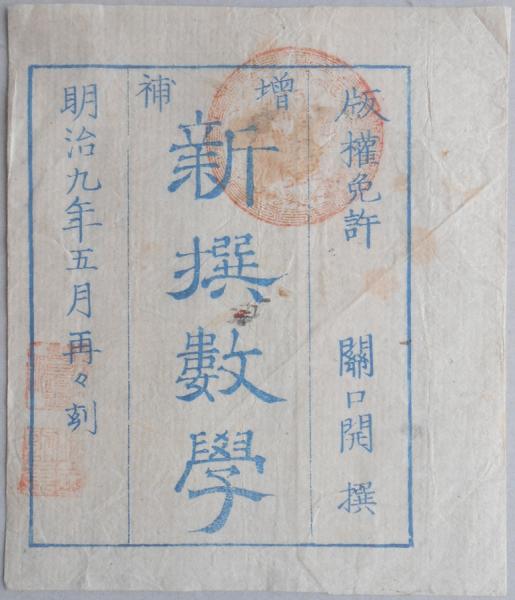 版權免許 關口開 撰
增補
新撰數學
明治九年五月再々刻